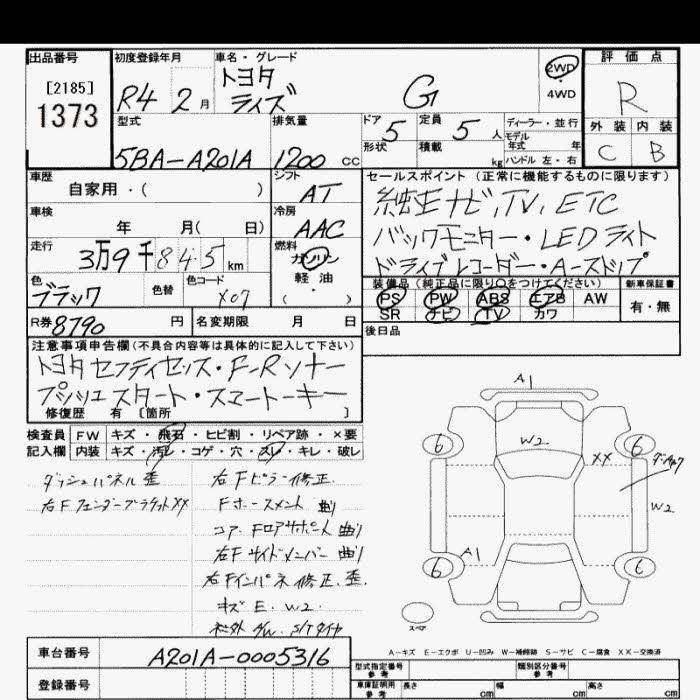 出品番号
[2185]
1373
初度登録年月
R4 2月
車名・グレード
トヨタ
ライズ
G
2WD
・
4WD
評価点
R
外装 内装
C B
型式
5BA-A201A
排気量
1200 cc
ドア 5
形状
定員 5 人
積載 kg
ディーラー・並行
モデル
年式 年
ハンドル 左・右
車歴
自家用・( )
シフト
AT
車検
年 月( 日)
冷房
AAC
走行
3万9千845km
燃料
ガソリン
軽油
・( )
色
ブラック
色替
色コード
X07
R券 8790 円
名変期限 月 日
セールスポイント(正常に機能するものに限ります)
純正ナビ,TV,ETC
バックモニター・LEDライト
ドライブレコーダー・A-ストップ
装備品(純正品に限り○をつけてください)
PS PW ABS エアB AW
SR ナビ TV カワ
新車保証書
有・無
後日品
注意事項申告欄(不具合内容等は具体的に記入して下さい)
トヨタセーフティセンス・F-Rソナー
プッシュスタート・スマートーキー
修復歴 有 〔箇所 〕
検査員
記入欄
FW キズ・飛石・ヒビ割・リペア跡・×要
内装 キズ・汚レ・コゲ・穴・スレ・キレ・破レ
ダッシュパネル 歪
右Fフェンダーブラケット××
右Fピラー修正
Fホースメント 曲り
コアF ロアサポート 曲り
右Fサイドメンバー 曲り
右Fインパネ修正.歪.
キズE.W2.
社外A/W.S/Tタイヤ
A1
6
W2
××
6
W2
A1
6
6
スペア
A-キズ E-エクボ U-凹み W-補修跡 S-サビ C-腐食 XX-交換済
車台番号
A201A-0005316
登録番号
型式指定番号
参考
類別区分番号
参考
車庫証明用
参考
長さ cm
幅 cm
高さ cm